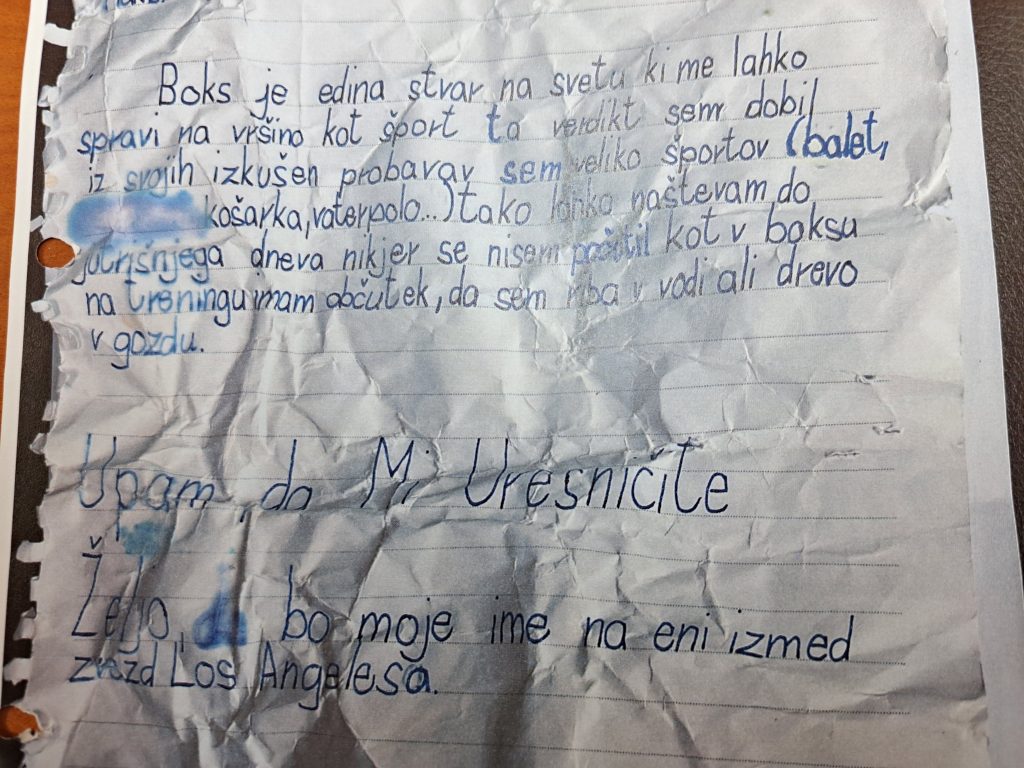 Boks je edina stvar na svetu ki me lahko
spravi na vršino kot šport ta verdikt sem dobil
iz svojih izkušen probavav sem veliko športov (balet,
košarka, vaterpolo...) tako lahko naštevam, do
dneva nikjer se nisem počutil kot v boksu
na treningu imam občutek, da sem riba v vodi ali drevo
v gozdu.
Upam, da Mi Uresničite
Željo, da bo moje ime na eni izmed
zvezd Los Angelesa.